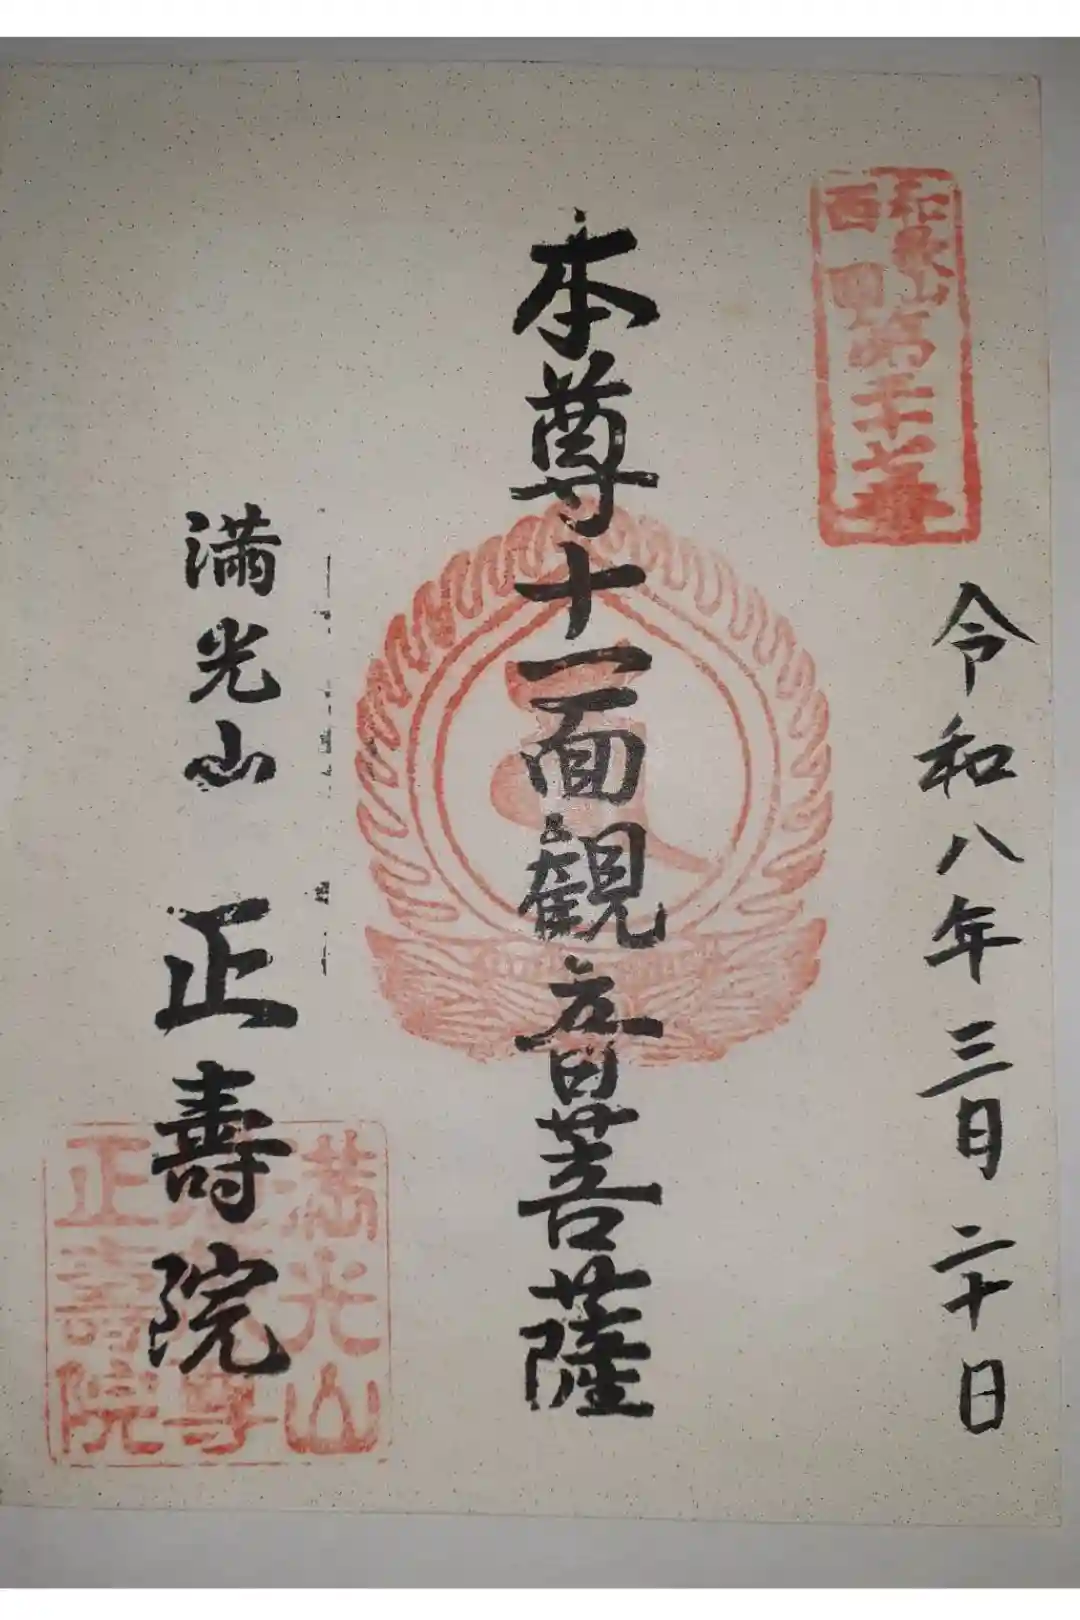 和歌山
西国
第二十七番
令和八年三月二十日
本尊十一面観音菩薩
満光山 正壽院
満光山
正壽院